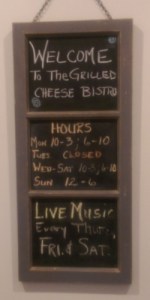 WELCOME
To The GRILLED
CHEESE BISTRO
HOURS
MON 10-3; 6-10
TUES CLOSED
WED-SAT 10-3, 6-10
SUN 12-6
LIVE MUSIC
Every Thur,
FRI. & SAT.